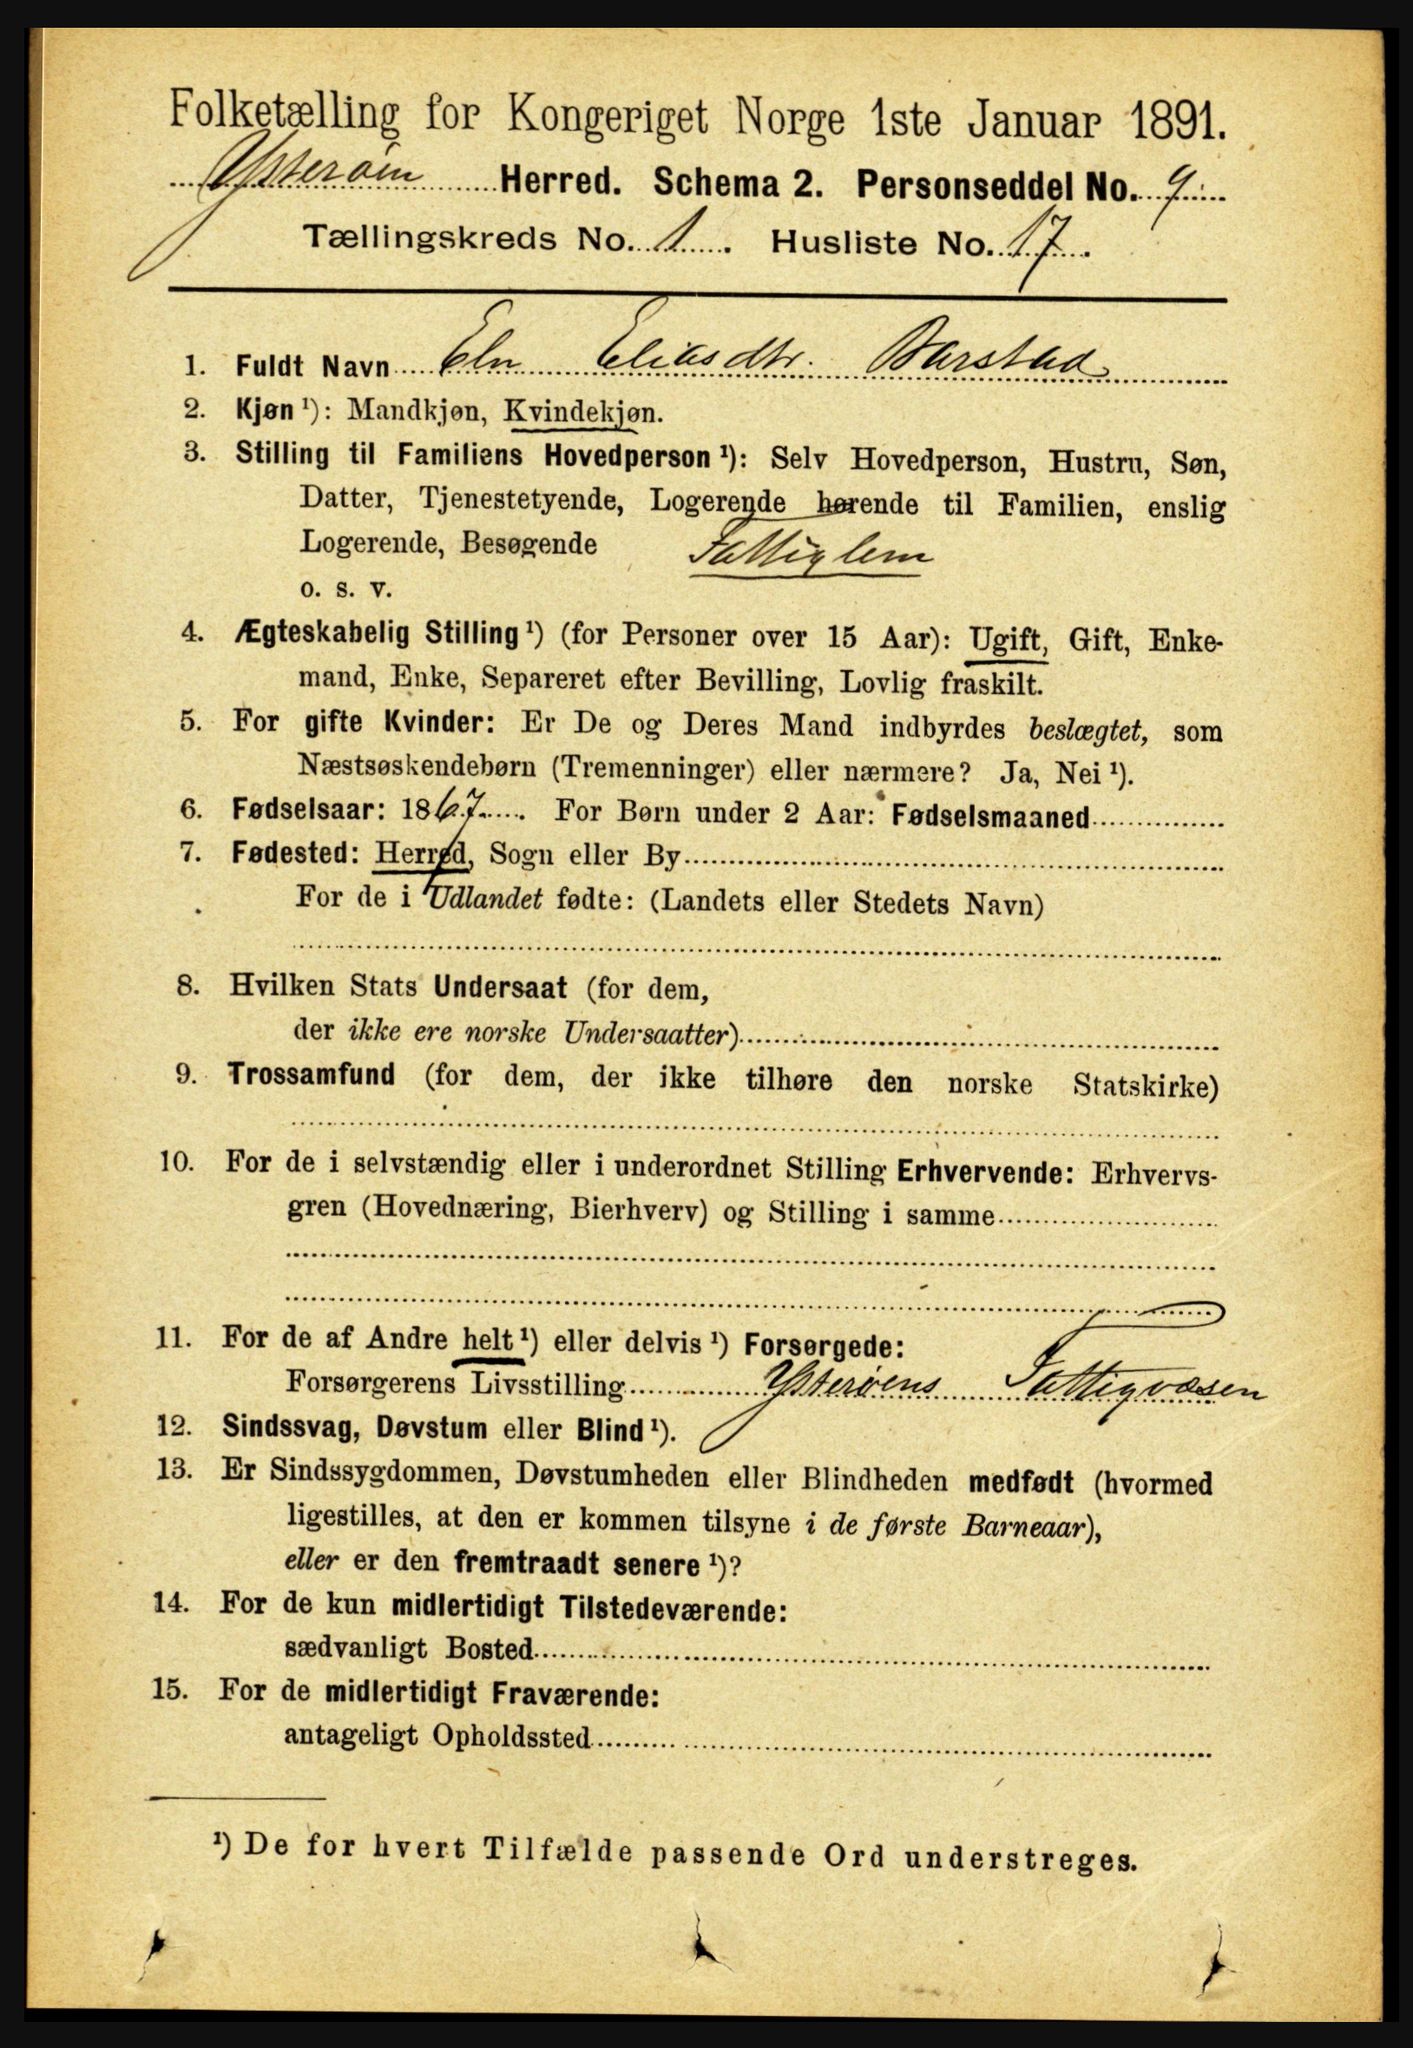 Folketælling for Kongeriget Norge 1ste Januar 1891.
Ytterøen Herred. Schema 2. Personseddel No. 9
Tællingskreds No. 1. Husliste No. 17.
1. Fuldt Navn Eln Eliasdtr. Barstad
2. Kjøn ¹): Mandkjøn, Kvindekjøn.
3. Stilling til Familiens Hovedperson ¹): Selv Hovedperson, Hustru, Søn,
Datter, Tjenestetyende, Logerende hørende til Familien, enslig
Logerende, Besøgende Fattiglem
o. s. v.
4. Ægteskabelig Stilling ¹) (for Personer over 15 Aar): Ugift, Gift, Enke-
mand, Enke, Separeret efter Bevilling, Lovlig fraskilt.
5. For gifte Kvinder: Er De og Deres Mand indbyrdes beslægtet, som
Næstsøskendebørn (Tremenninger) eller nærmere? Ja, Nei ¹).
6. Fødselsaar: 1867. For Børn under 2 Aar: Fødselsmaaned
7. Fødested: Herred, Sogn eller By
For de i Udlandet fødte: (Landets eller Stedets Navn)
8. Hvilken Stats Undersaat (for dem,
der ikke ere norske Undersaatter)
9. Trossamfund (for dem, der ikke tilhøre den norske Statskirke)
10. For de i selvstændig eller i underordnet Stilling Erhvervende: Erhvervs-
gren (Hovednæring, Bierhverv) og Stilling i samme
11. For de af Andre helt ¹) eller delvis ¹) Forsørgede:
Forsørgerens Livsstilling Ytterøens Fattigvæsen
12. Sindssvag, Døvstum eller Blind ¹).
13. Er Sindssygdommen, Døvstumheden eller Blindheden medfødt (hvormed
ligestilles, at den er kommen tilsyne i de første Barneaar),
eller er den fremtraadt senere ¹)?
14. For de kun midlertidigt Tilstedeværende:
sædvanligt Bosted
15. For de midlertidigt Fraværende:
antageligt Opholdssted
¹) De for hvert Tilfælde passende Ord understreges.